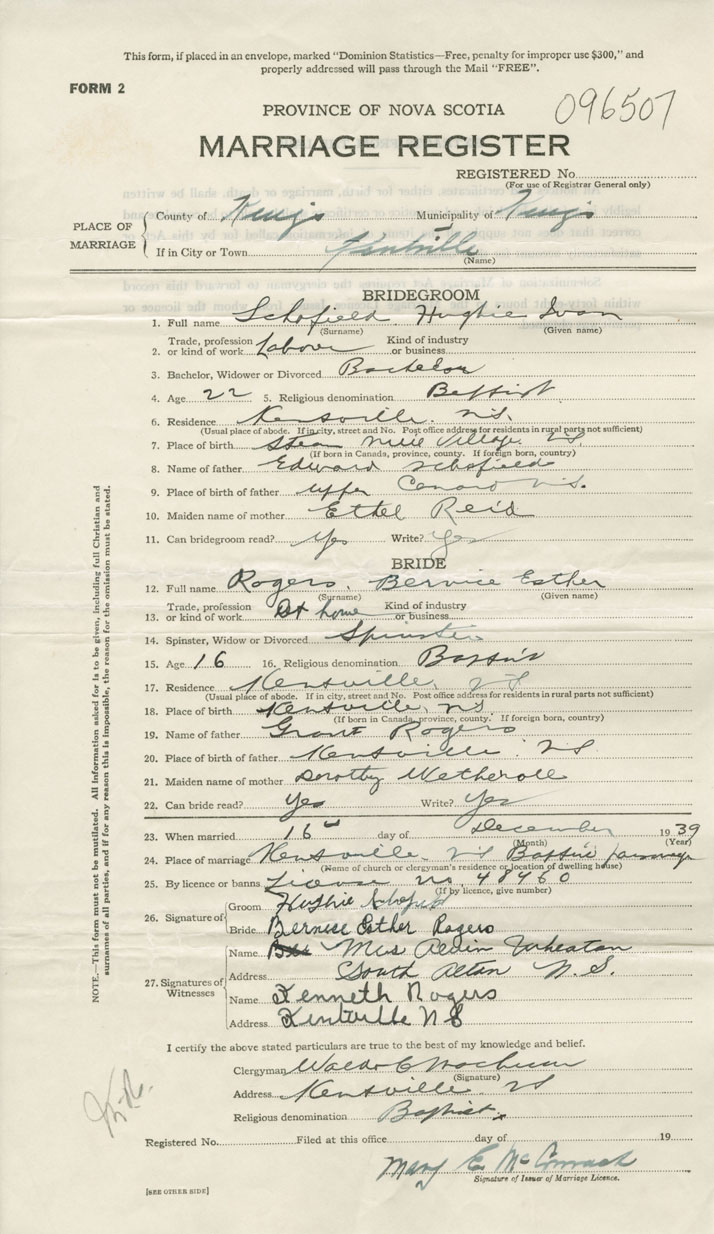 This form, if placed in an envelope, marked "Dominion Statistics—Free, penalty for improper use $300," and
properly addressed will pass through the Mail "FREE".
FORM 2
096507
PROVINCE OF NOVA SCOTIA
MARRIAGE REGISTER
REGISTERED No.
(For use of Registrar General only)
PLACE OF MARRIAGE
County of Kings Municipality of Kings
If in City or Town Kentville
(Name)
BRIDEGROOM
1. Full name Schofield Hughie Ivan
(Surname) (Given name)
2. Trade, profession or kind of work Labover Kind of industry or business
3. Bachelor, Widower or Divorced Bachelor
4. Age 22 5. Religious denomination Baptist
6. Residence Kentville N.S.
(Usual place of abode. If in city, street and No. Post office address for residents in rural parts not sufficient)
7. Place of birth Steam Mill Village NS
(If born in Canada, province, county. If foreign born, country)
8. Name of father Edward Schofield
9. Place of birth of father Upper Canard N.S.
10. Maiden name of mother Ethel Reid
11. Can bridegroom read? Yes Write? Yes
BRIDE
12. Full name Rogers, Bernice Esther
(Surname) (Given name)
13. Trade, profession or kind of work At home Kind of industry or business
14. Spinster, Widow or Divorced Spinster
15. Age 16 16. Religious denomination Baptist
17. Residence Kentville, NS
(Usual place of abode. If in city, street and No. Post office address for residents in rural parts not sufficient)
18. Place of birth Kentville, NS
(If born in Canada, province, county. If foreign born, country)
19. Name of father Grant Rogers
20. Place of birth of father Kentville NS
21. Maiden name of mother Dorothy Wetherall
22. Can bride read? Yes Write? Yes
23. When married 16 day of December 1939
(Month) (Year)
24. Place of marriage Kentville NS Baptist parsonage
(Name of church or clergyman's residence or location of dwelling house)
25. By licence or banns License No. 48460
(If by licence, give number)
26. Signature of
Groom Hughie Schofield
Bride Bernise Esther Rogers
27. Signatures of Witnesses
Name Mrs Alvin Wheaton
Address South Alton N.S.
Name Kenneth Rogers
Address Kentville NS
I certify the above stated particulars are true to the best of my knowledge and belief.
Clergyman
(Signature)
Address Kentville NS
Religious denomination Baptist
Registered No. Filed at this office day of 19
Mary E. McCormack
Signature of Issuer of Marriage Licence.
[SEE OTHER SIDE]
NOTE.—This form must not be mutilated. All information asked for is to be given, including full Christian and
surnames of all parties, and if for any reason this is impossible, the reason for the omission must be stated.